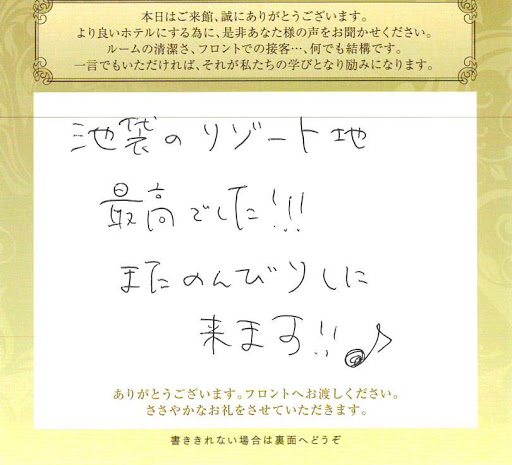 本日はご来館、誠にありがとうございます。
より良いホテルにする為に、是非あなた様の声をお聞かせください。
ルームの清潔さ、フロントでの接客…、何でも結構です。
一言でもいただければ、それが私たちの学びとなり励みになります。
池袋のリゾート地
最高でした!!!
またのんびりしに
来ます!!♪
ありがとうございます。フロントへお渡しください。
ささやかなお礼をさせていただきます。
書ききれない場合は裏面へどうぞ